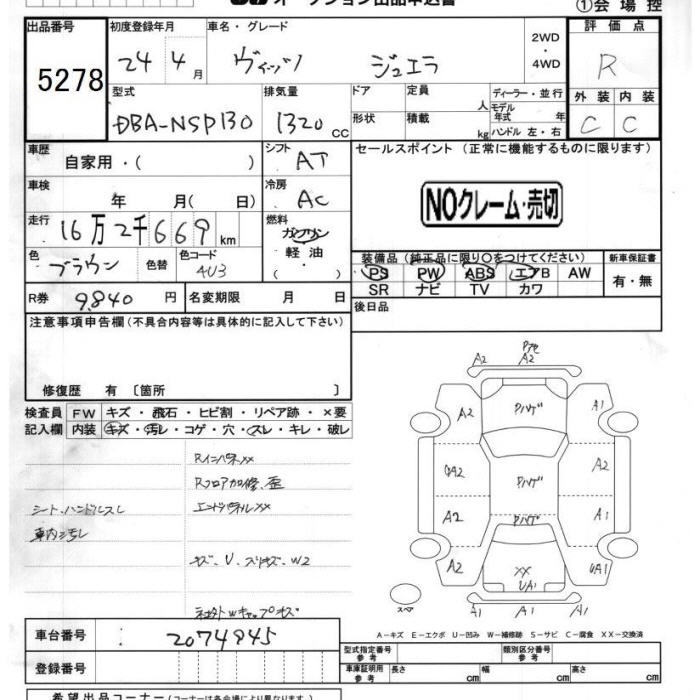 オークション出品申込書
①会場控
出品番号 初度登録年月 車名・グレード 2WD・4WD 評価点
5278 24 4月 ヴィッツ ジュエラ R
型式 排気量 ドア 定員 人 ディーラー・並行 外装 内装
DBA-NSP130 1320 CC 形状 積載 kg モデル年式 年 ハンドル 左・右 C C
車歴 自家用・( ) シフト AT セールスポイント (正常に機能するものに限ります)
車検 年 月( 日) 冷房 AC
NOクレーム・売切
走行 16万2千669km 燃料 ガソリン 軽油・( )
色 ブラウン 色替 色コード 4U3
装備品 (純正品に限り○をつけてください) 新車保証書
PS PW ABS エアB AW 有・無
SR ナビ TV カワ
R券 9,840円 名変期限 月 日
後日品
注意事項申告欄 (不具合内容等は具体的に記入して下さい)
修復歴 有 〔箇所 〕
検査員記入欄 FW キズ・飛石・ヒビ割・リペア跡・×要
内装 キズ・汚レ・コゲ・穴・スレ・キレ・破レ
Rインパネxx
Rフロア加修、歪
シート・ハンドルスレ エンドパネルxx
車内汚レ
キズ、U、スリキズ、W2
A2 A2
A2 Pハゲ A1
UA2 Pハゲ A2
A2 Pハゲ A1
A2 XX UA1 UA1
A1 A1 A1
スペア
A-キズ E-エクボ U-凹み W-補修跡 S-サビ C-腐食 XX-交換済
車台番号 2074945
型式指定番号 参考 類別区分番号 参考
登録番号 車庫証明用 参考 長さ cm 幅 cm 高さ cm
希望出品コーナー (コーナーは各会場により異なります。)